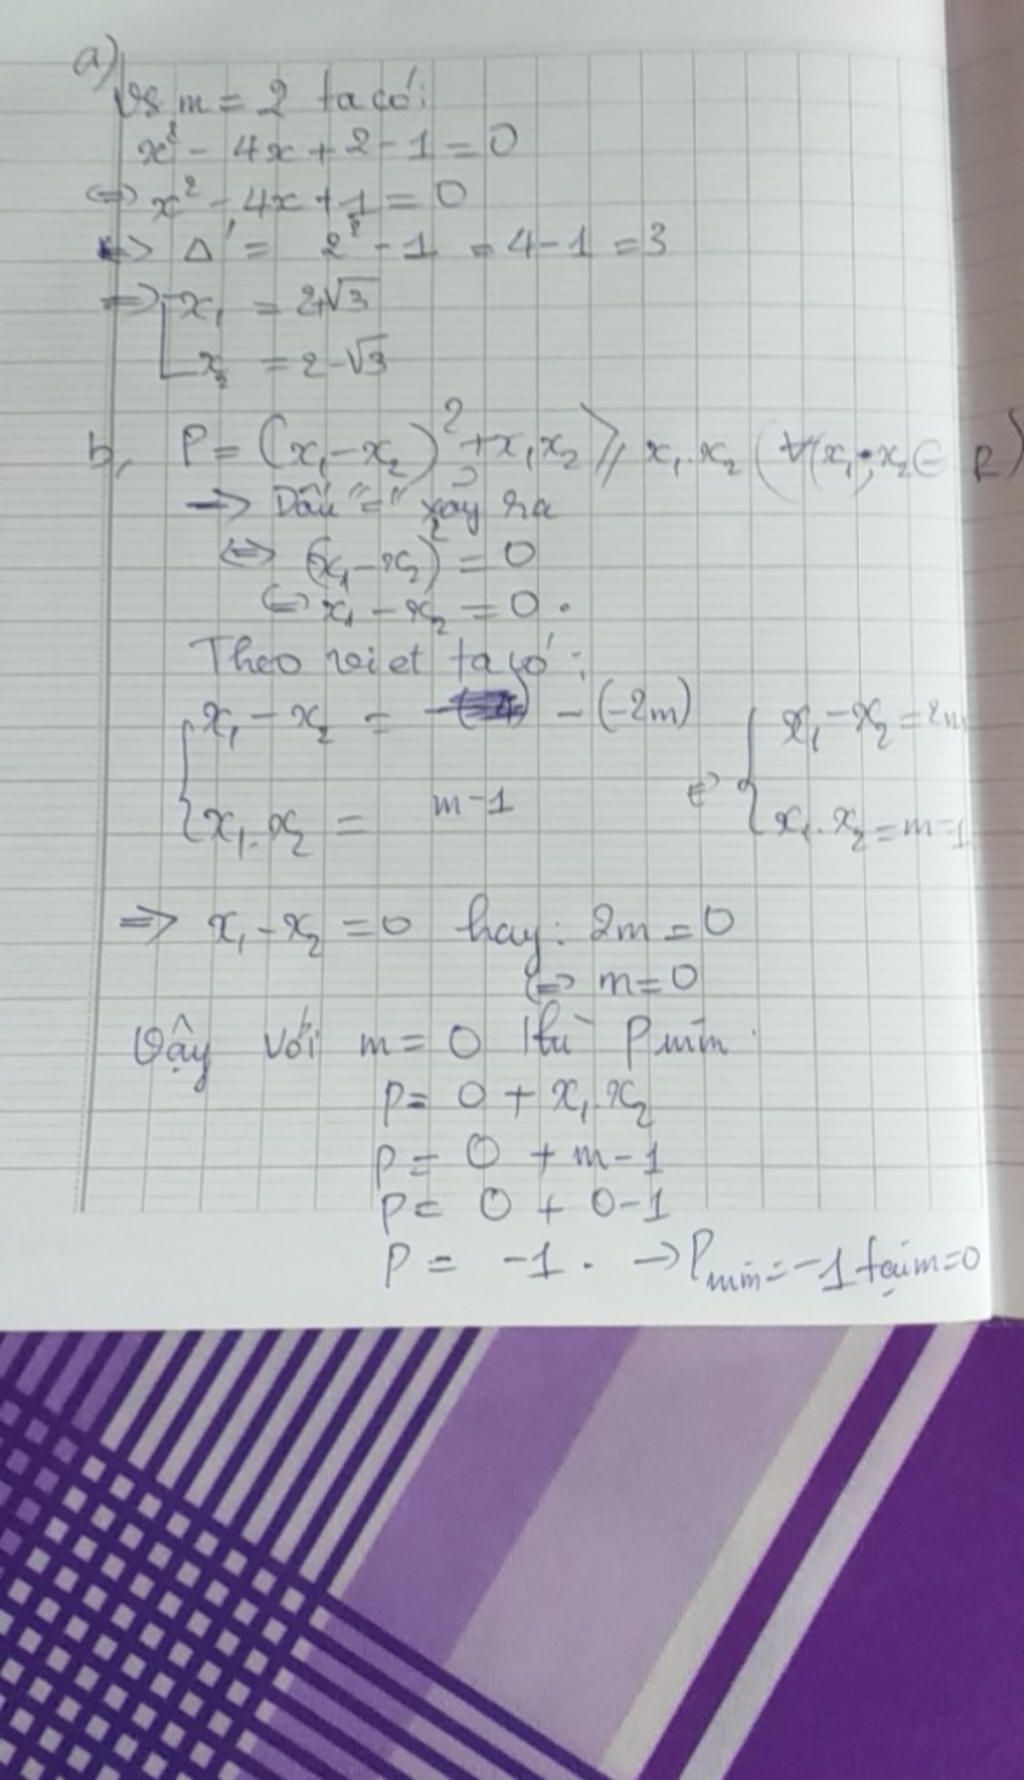 a)
Vs m = 2 ta có:
x² - 4x + 2 - 1 = 0
<=> x² - 4x + 1 = 0
=> Δ' = 2² - 1 = 4 - 1 = 3
=> [ x₁ = 2+√3
x₂ = 2-√3
b, P = (x₁ - x₂)² + x₁x₂ ≥ x₁.x₂ (∀(x₁; x₂ ∈ R)
=> Dấu "=" xảy ra
<=> (x₁ - x₂)² = 0
<=> x₁ - x₂ = 0.
Theo viet ta có:
{ x₁ - x₂ = - (-2m) <=> { x₁ - x₂ = 2m
x₁.x₂ = m-1 x₁.x₂ = m-1
=> x₁ - x₂ = 0 hay: 2m = 0
<=> m = 0
Vậy với m = 0 thì Pmin
P = 0 + x₁.x₂
P = 0 + m - 1
P = 0 + 0 - 1
P = -1. -> Pmin = -1 tại m = 0